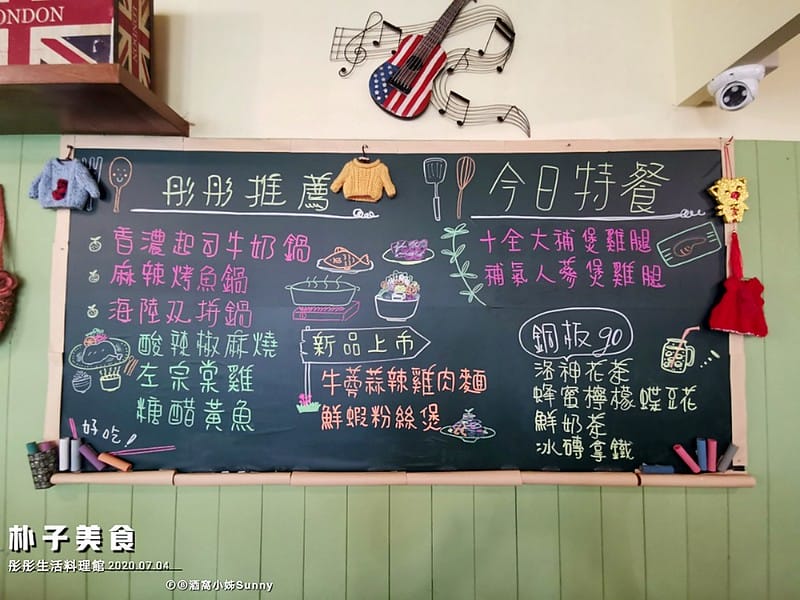 ONDON
彤彤推薦
香濃起司牛奶鍋
麻辣烤魚鍋
海陸双拼鍋
酸辣椒麻燒
左宗棠雞
糖醋黃魚
好吃!
新品上市
牛蒡蒜辣雞肉麵
鮮蝦粉絲煲
今日特餐
十全大補煲雞腿
補氣人蔘煲雞腿
銅板go
洛神花茶
蜂蜜檸檬蝶豆花
鮮奶茶
冰磚拿鐵
朴子美食
彤彤生活料理館 2020.07.04
ⒻⒷ酒窩小姊Sunny